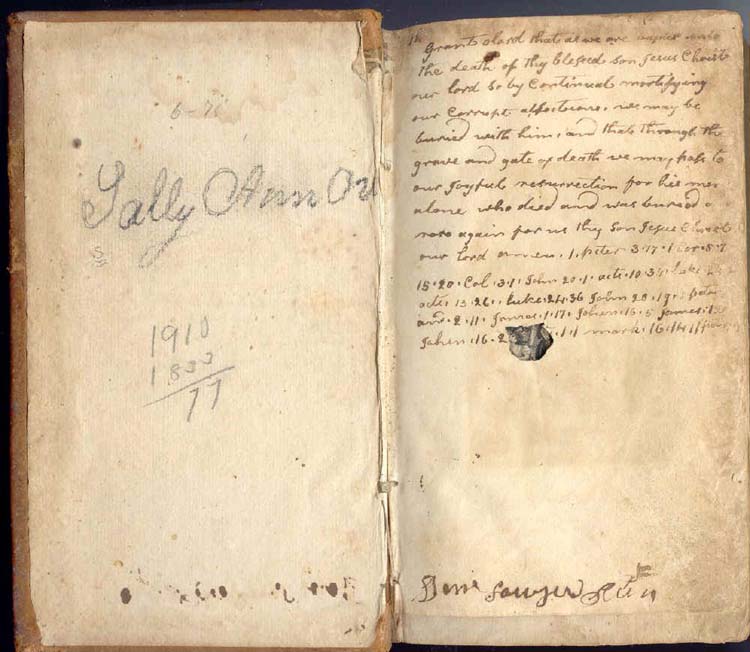 6-7
Sally Ann
1910
1833
77
Grant o lord that as we are unto
the death of thy blessed son Jesus Christ
our lord so by Continual mortifying
our Corrupt affections, we may be
buried with him, and that through the
grave and gate of death we may pass to
our Joyful resurrection for his mer
alone who died and was buried
rose again for us thy Son Jesus Christ
our lord amen. 1 peter 3.17. 1 Cor. 5.7
15.20. Col. 3.1 John 20.1. acts 10.34. luke
acts 13.26. luke 24.36 John 20.19.
2.11. James. 1.17. John. 16.5 James. 1
John. 16.2 1.1 mark. 16.14
Sawyer